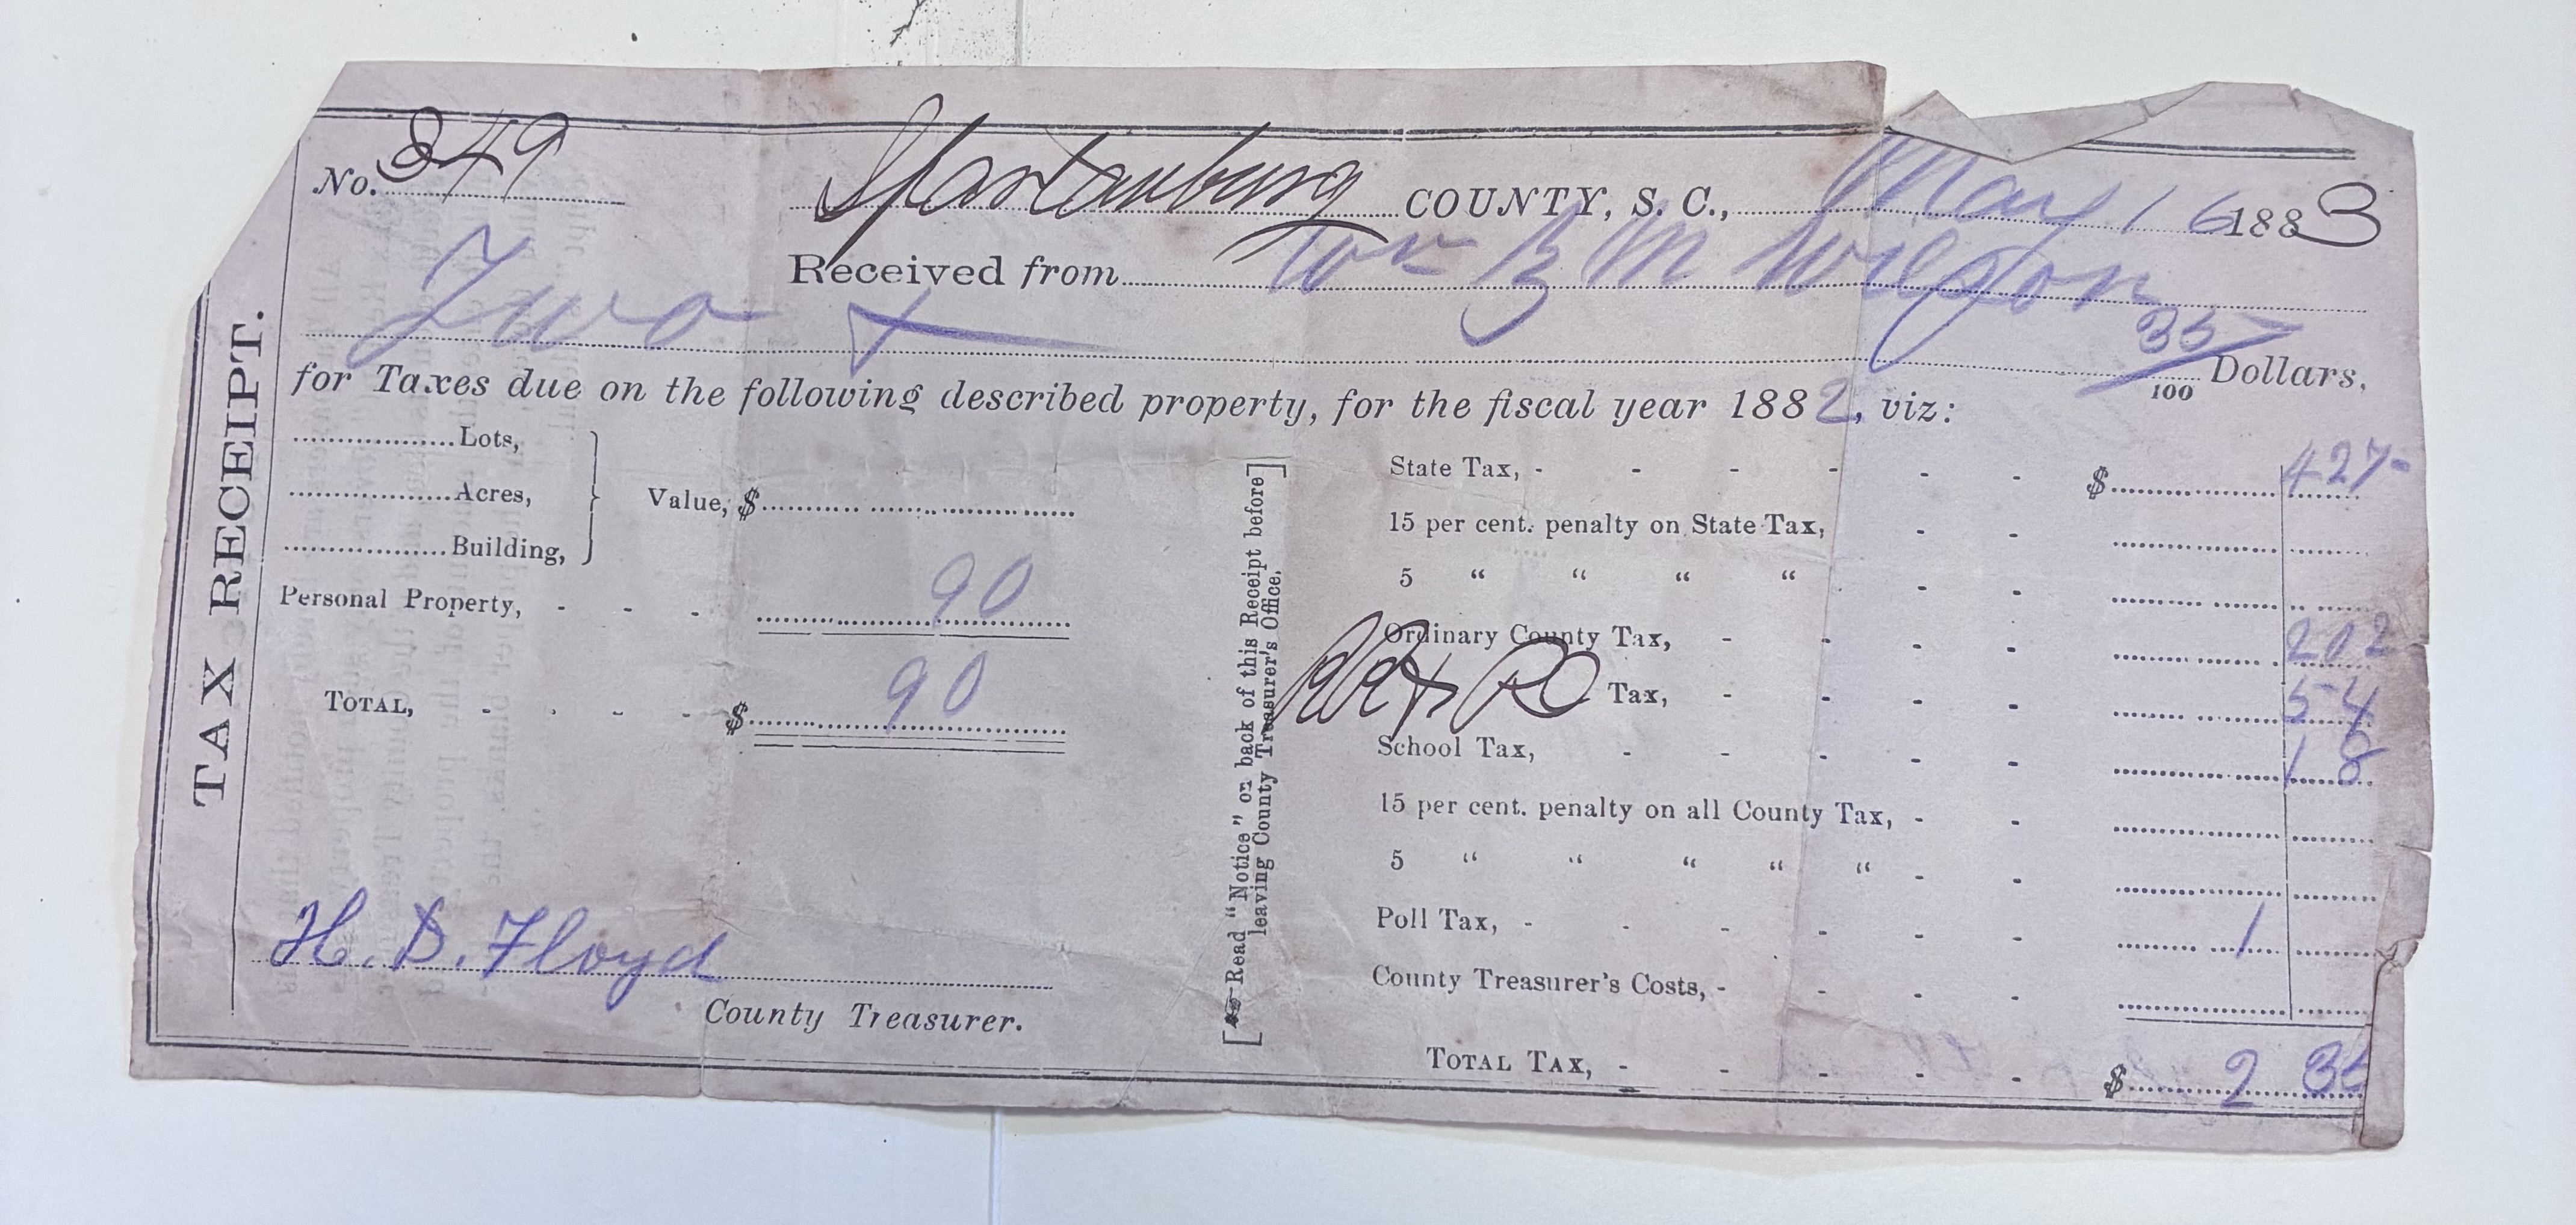 No. 849
Spartanburg COUNTY, S. C., May 16 1883
Received from B M Wilson
Two 35/100 Dollars,
for Taxes due on the following described property, for the fiscal year 1882, viz:
Lots,
Acres,
Building,
Value, $
Personal Property, - - - 90
TOTAL, - - - - $ 90
H. D. Floyd
County Treasurer.
TAX RECEIPT.
[Read "Notice" on back of this Receipt before
leaving County Treasurer's Office.]
State Tax, - - - - - - $ 427
15 per cent. penalty on State Tax, - -
5 " " " " - -
Ordinary County Tax, - - - - 202
Tax, - - - - 54
School Tax, - - - - - 18
15 per cent. penalty on all County Tax, - -
5 " " " " " - -
Poll Tax, - - - - - - 1
County Treasurer's Costs, - - - -
TOTAL TAX, - - - - - $ 2 35